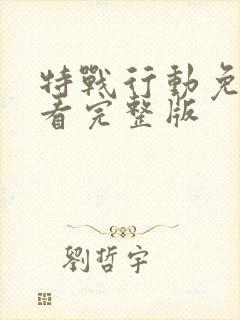 特戰行動免
看完整版
劉哲宇